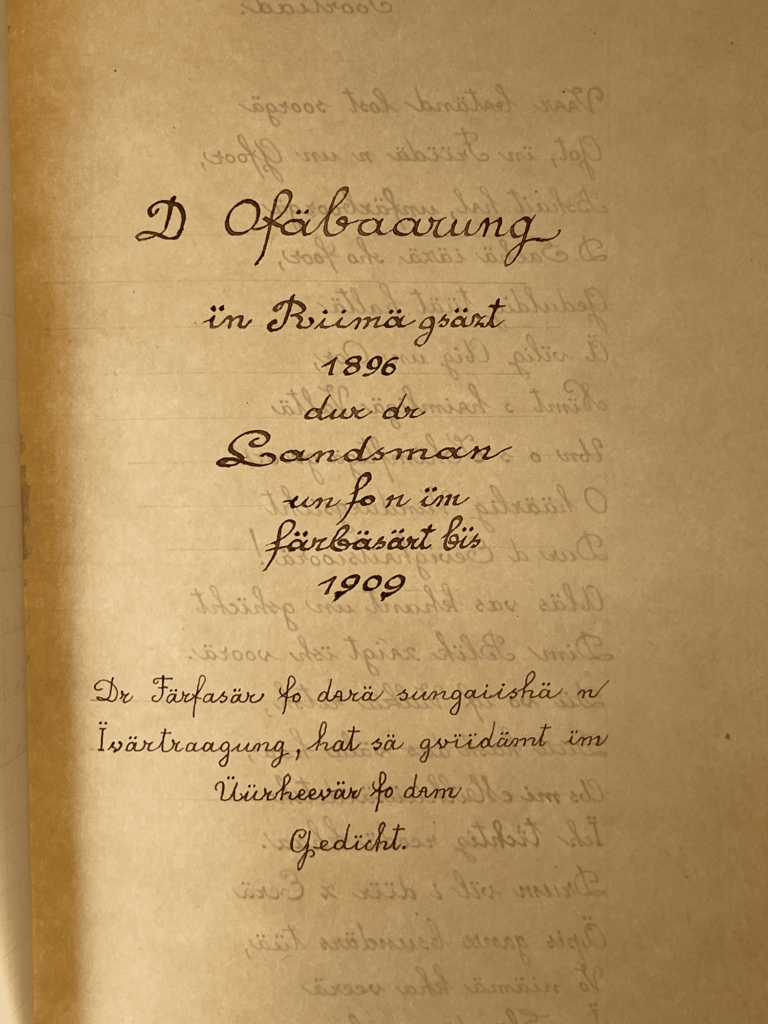 D Ofäbaarung
ïn Riimä gsäzt
1896
dur dr
Landsman
un fo n ïm
färbäsärt bïs
1909
Dr Färfasär fo därä sungaiishä n
Ïvärtraagung, hat sä gviidämt ïm
Üürheevär fo däm
Gedïcht.